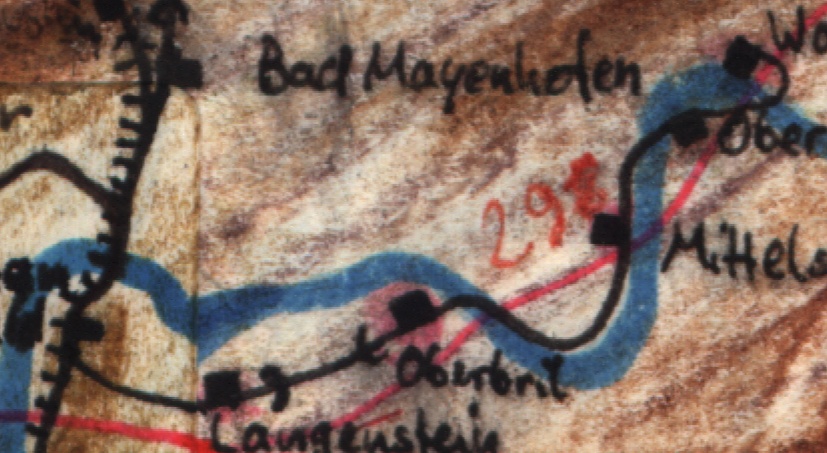 Bad Mayenhofen
Wo
Ober
298
Mittels
Oberbril
Langenstein